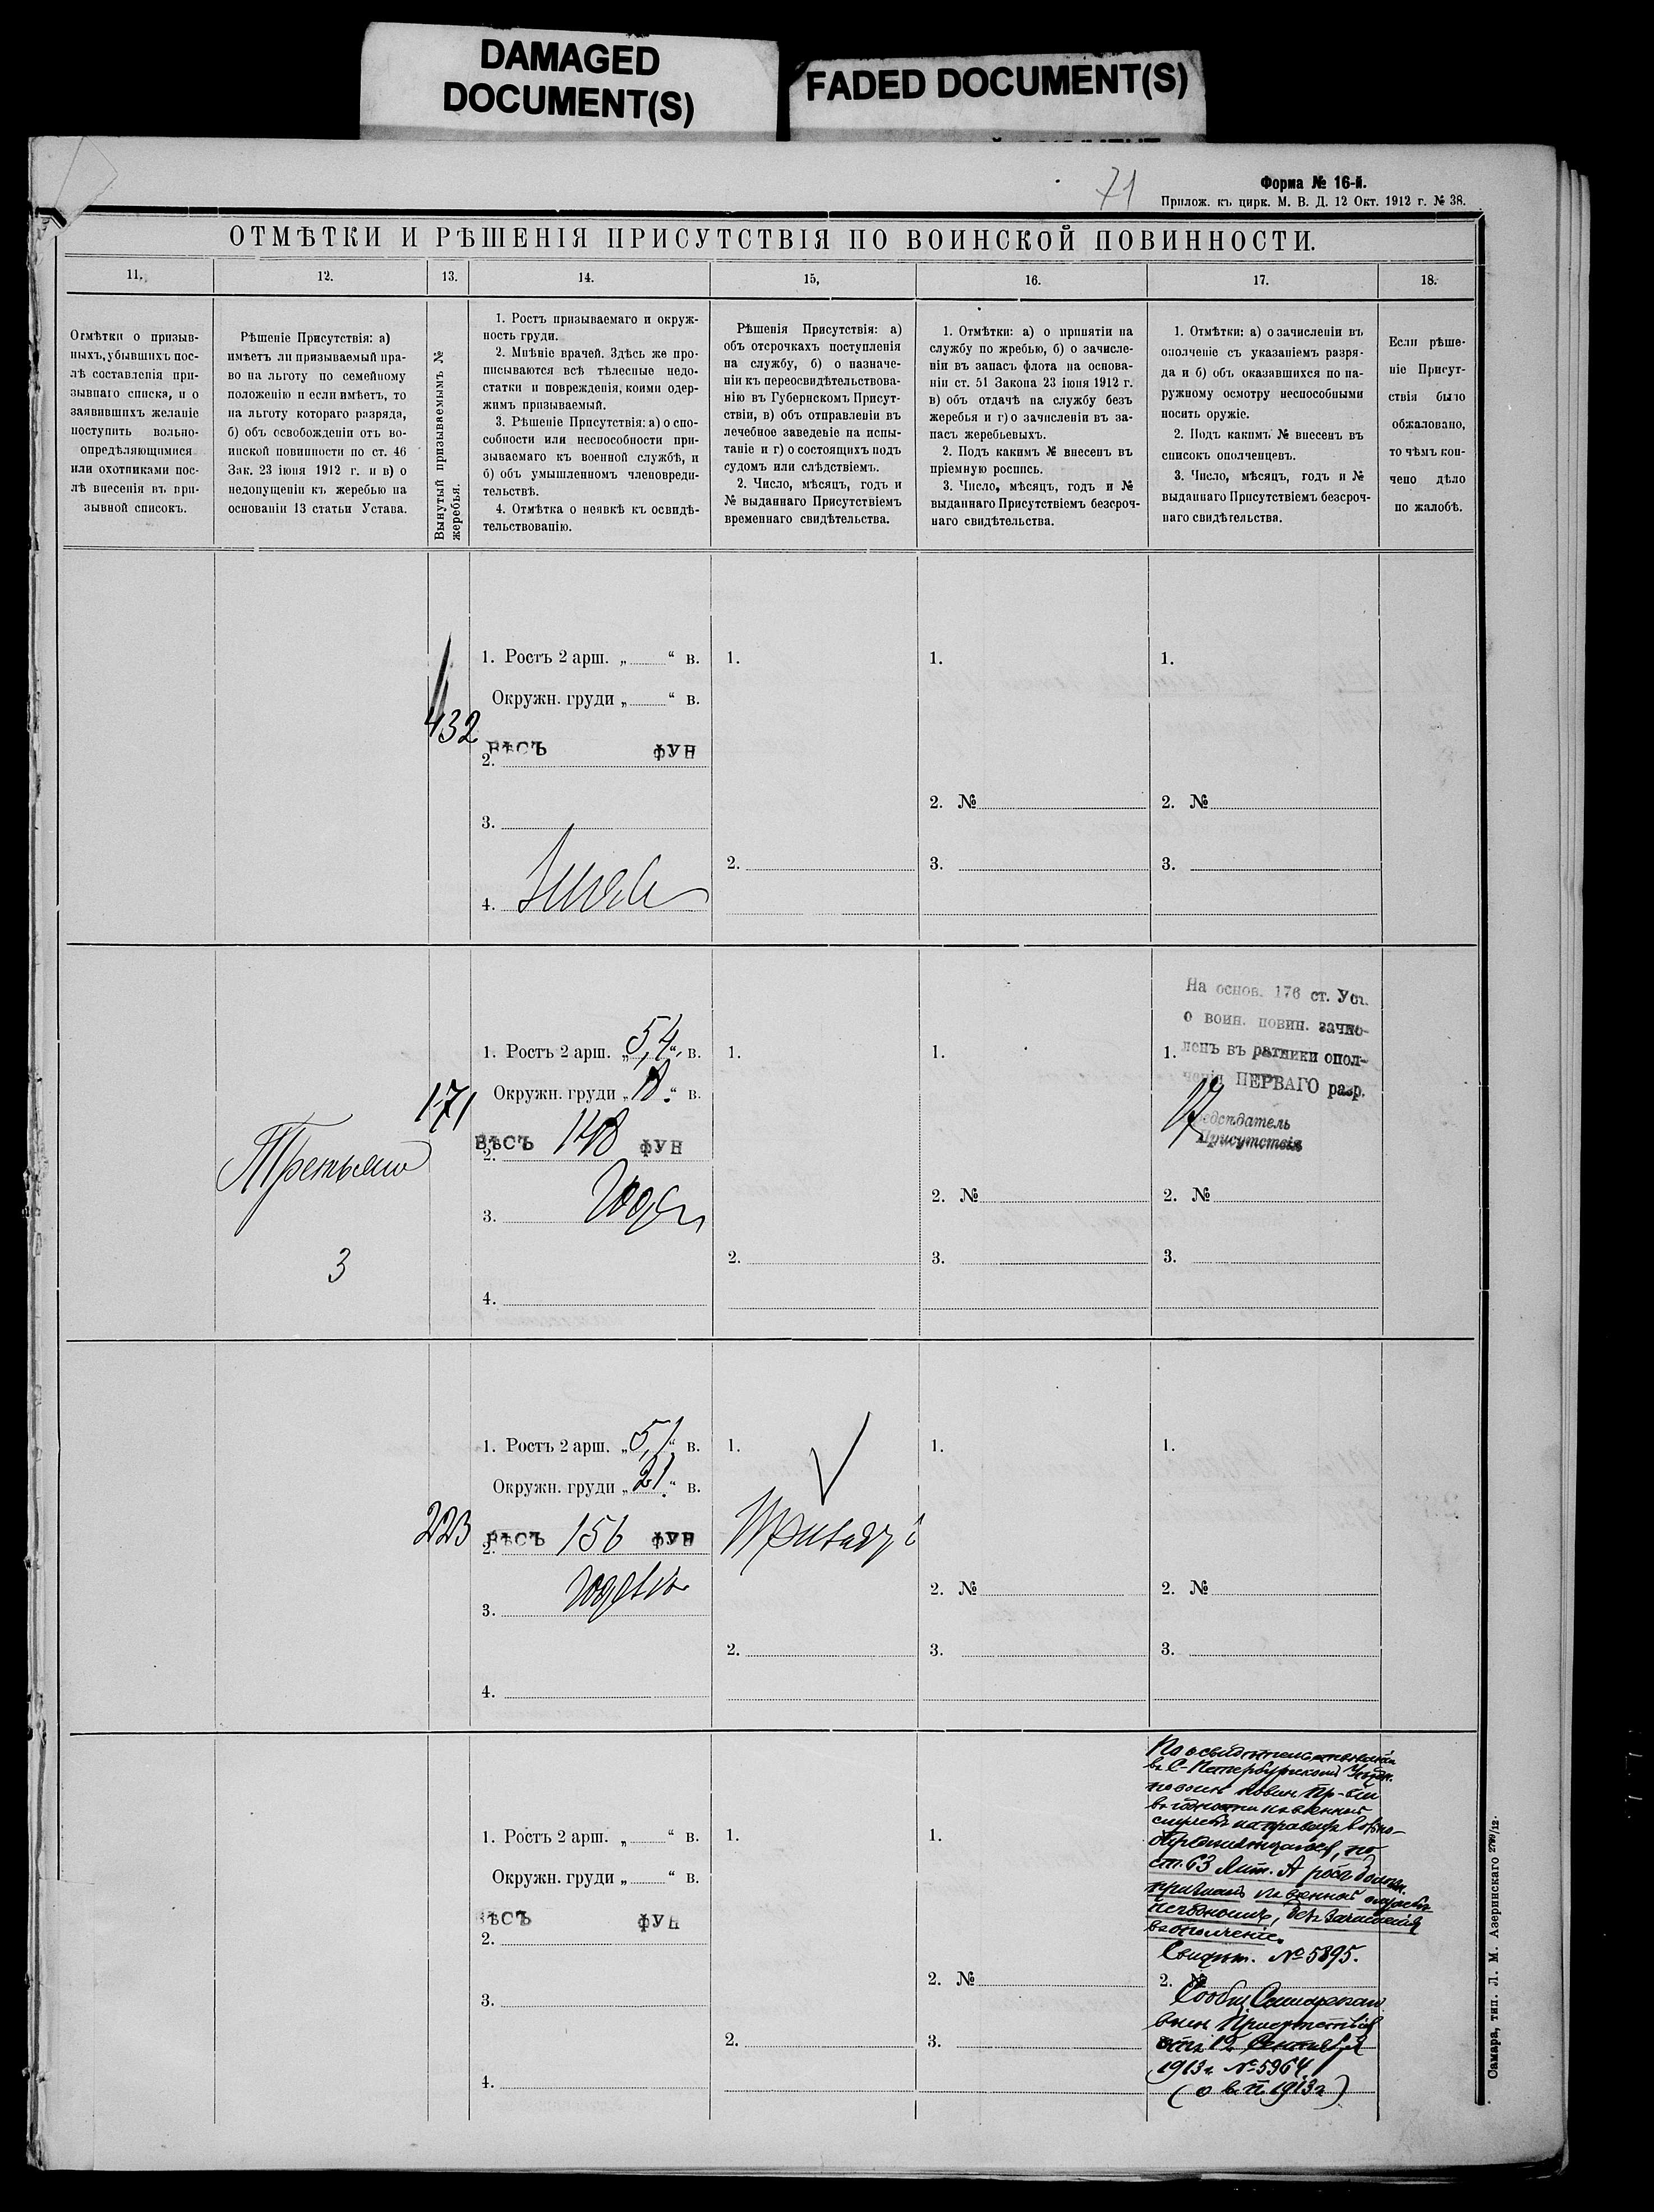 DAMAGED
DOCUMENT(S)
FADED DOCUMENT(S)
71
Форма № 16-й.
Прилож. къ цирк. М. В. Д. 12 Окт. 1912 г. № 38.
ОТМѢТКИ И РѢШЕНІЯ ПРИСУТСТВІЯ ПО ВОИНСКОЙ ПОВИННОСТИ.
11. 12. 13. 14. 15, 16. 17. 18.
Отмѣтки о призыв-
ныхъ, убывшихъ пос-
лѣ составленія при-
зывнаго списка, и о
заявившихъ желаніе
поступить вольно-
опредѣляющимися
или охотниками пос-
лѣ внесенія въ при-
зывной списокъ.
Рѣшеніе Присутствія: а)
имѣетъ ли призываемый пра-
во на льготу по семейному
положенію и если имѣетъ, то
на льготу котораго разряда,
б) объ освобожденіи отъ во-
инской повинности по ст. 46
Зак. 23 іюня 1912 г. и в) о
недопущеніи къ жеребью на
основаніи 13 статьи Устава.
Вынутый призываемымъ №
жеребья.
1. Ростъ призываемаго и окруж-
ность груди.
2. Мнѣніе врачей. Здѣсь же про-
писываются всѣ тѣлесные недо-
статки и поврежденія, коими одер-
жимъ призываемый.
3. Рѣшеніе Присутствія: а) о спо-
собности или неспособности при-
зываемаго къ военной службѣ, и
б) объ умышленномъ членовреди-
тельствѣ.
4. Отмѣтка о неявкѣ къ освидѣ-
тельствованію.
Рѣшенія Присутствія: а)
объ отсрочкахъ поступленія
на службу, б) о назначе-
ніи къ переосвидѣтельствова-
нію въ Губернскомъ Присут-
ствіи, в) объ отправленіи въ
лечебное заведеніе на испы-
таніе и г) о состоящихъ подъ
судомъ или слѣдствіемъ.
2. Число, мѣсяцъ, годъ и
№ выданнаго Присутствіемъ
временнаго свидѣтельства.
1. Отмѣтки: а) о принятіи на
службу по жребью, б) о зачисле-
ніи въ запасъ флота на основа-
ніи ст. 51 Закона 23 іюня 1912 г.
в) объ отдачѣ на службу безъ
жеребья и г) о зачисленіи въ за-
пасъ жеребьевыхъ.
2. Подъ какимъ № внесенъ въ
пріемную роспись.
3. Число, мѣсяцъ, годъ и №
выданнаго Присутствіемъ безсроч-
наго свидѣтельства.
1. Отмѣтки: а) о зачисленіи въ
ополченіе съ указаніемъ разря-
да и б) объ оказавшихся по на-
ружному осмотру неспособными
носить оружіе.
2. Подъ какимъ № внесенъ въ
списокъ ополченцевъ.
3. Число, мѣсяцъ, годъ и №
выданнаго Присутствіемъ безсроч-
наго свидѣтельства.
Если рѣше-
ніе Присут-
ствія было
обжаловано,
то чѣмъ кон-
чено дѣло
по жалобѣ.
432
1. Ростъ 2 арш. „ “ в.
Окружн. груди „ “ в.
ВѢСЪ ФУН
2.
3.
4.
1.
2.
1.
2. №
3.
1.
2. №
3.
Третьяго
3
171
1. Ростъ 2 арш. „5,4“ в.
Окружн. груди „18“ в.
ВѢСЪ 148 ФУН
2.
3. Годен
4.
1.
2.
1.
2. №
3.
На основ. 176 ст. Уст.
о воин. повин. зачис-
1. ленъ въ ратники опол-
ченія ПЕРВАГО разр.
Предсѣдатель
Присутствія
2. №
3.
223
1. Ростъ 2 арш. „5,1“ в.
Окружн. груди „21“ в.
ВѢСЪ 156 ФУН
2.
3. Годенъ
4.
1.
2.
1.
2. №
3.
1.
2. №
3.
1. Ростъ 2 арш. „ “ в.
Окружн. груди „ “ в.
ВѢСЪ ФУН
2.
3.
4.
1.
2.
1.
2. №
3.
По освидѣтельствованіи
въ С-Петербургскомъ Уѣздн.
по воин повин Пр-віи
въ годности къ военной
службѣ на правахъ вольно-
опредѣляющагося, по
ст. 63 Лит. А росп. болѣзн.
признанъ къ военной службѣ
негоднымъ, безъ зачисленія
въ ополченіе.
Свидѣт. № 5895.
2. №
Сообщ Самарскаго
воин Присутствія
отъ 12 Сентября
1913 г. № 5364
(о в. п. 1913 г)
Самара, тип. Л. М. Азеринскаго 2799/12.